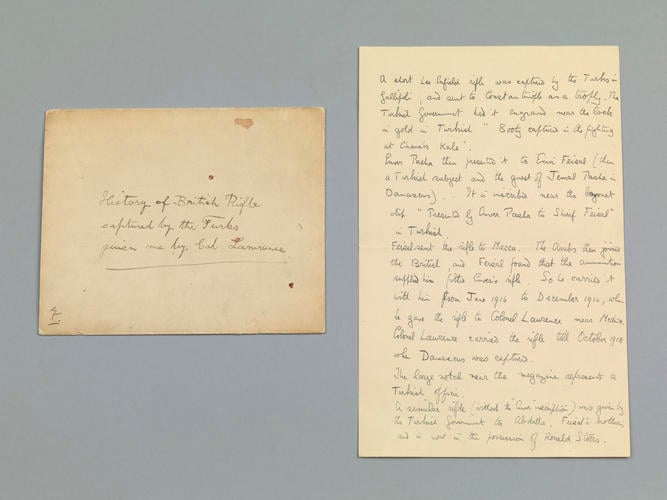 History of British Rifle
captured by the Turks
given me by Col. Lawrence
A short Lee Enfield rifle was captured by the Turks in
Gallipoli, and sent to Constantinople as a trophy. The
Turkish Government had it engraved near the lock
in gold in Turkish "Booty captured in the fighting
at Chanak Kale".
Enver Pasha then presented it to Emir Feisal (then
a Turkish subject and the guest of Jemal Pasha in
Damascus). . It is inscribed near the bayonet
clip "Presented by Enver Pasha to Sherif Feisal"
in Turkish.
Feisal sent the rifle to Mecca. The Arabs then joined
the British, and Feisal found that the ammunition
supplied him fitted Enver's rifle. So he carried it
with him from June 1916 to December 1916, when
he gave the rifle to Colonel Lawrence near Medina.
Colonel Lawrence carried the rifle till October 1918
when Damascus was captured.
The large notch near the magazine represents a
Turkish officer.
A similar rifle (without the Enver inscription) was given by
the Turkish Government to Abdulla, Feisal's brother,
and is now in the possession of Ronald Storrs.